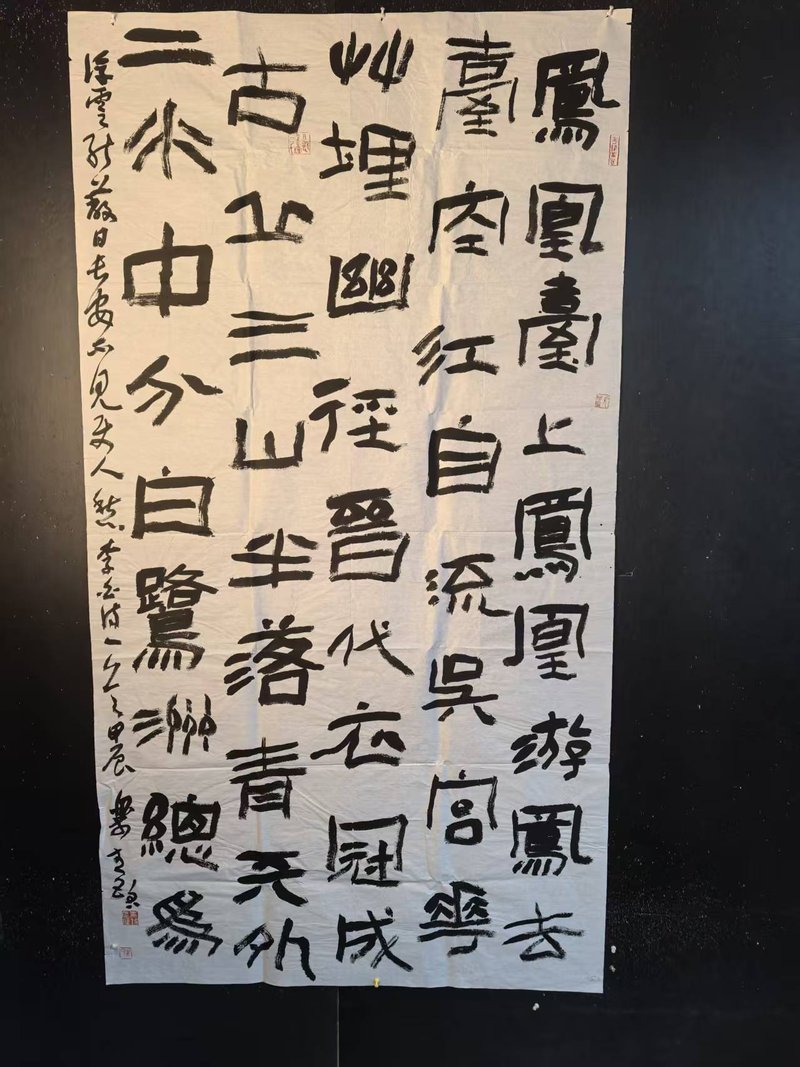 鳳凰臺上鳳凰游鳳去
臺空江自流吳宮華
艸埋幽徑晉代衣冠成
古丘三山半落青天外
二水中分白鷺洲總爲
浮雲能蔽日长安不見使人愁李白詩一首甲辰